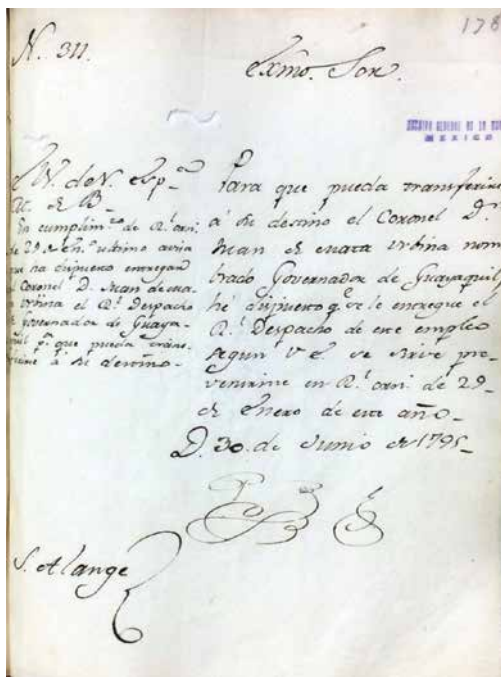 178
N. 311.
Exmo. Sor.
ARCHIVO GENERAL DE LA
MEXICO
El V. de N. Esp.a
M. de B.
En cumplim.to de R.l orn.
de 29 de En.o ultimo avisa
que ha dispuesto entregar
al Coronel D. Juan de Ma-
ta Urbina el R.l Despacho
de Governador de Guaya-
quil p.a que pueda trans-
ferirse á su destino.
Para que pueda transferirse
á su destino el Coronel D.n
Juan de Mata Urbina nom
brado Governador de Guayaquil,
hé dispuesto q.e se le entregue el
R.l Despacho de este empleo
segun V E se sirve pre-
venirme en R.l orn. de 29
de Enero de este año.
D. 30. de Junio de 1791.
S. Alange